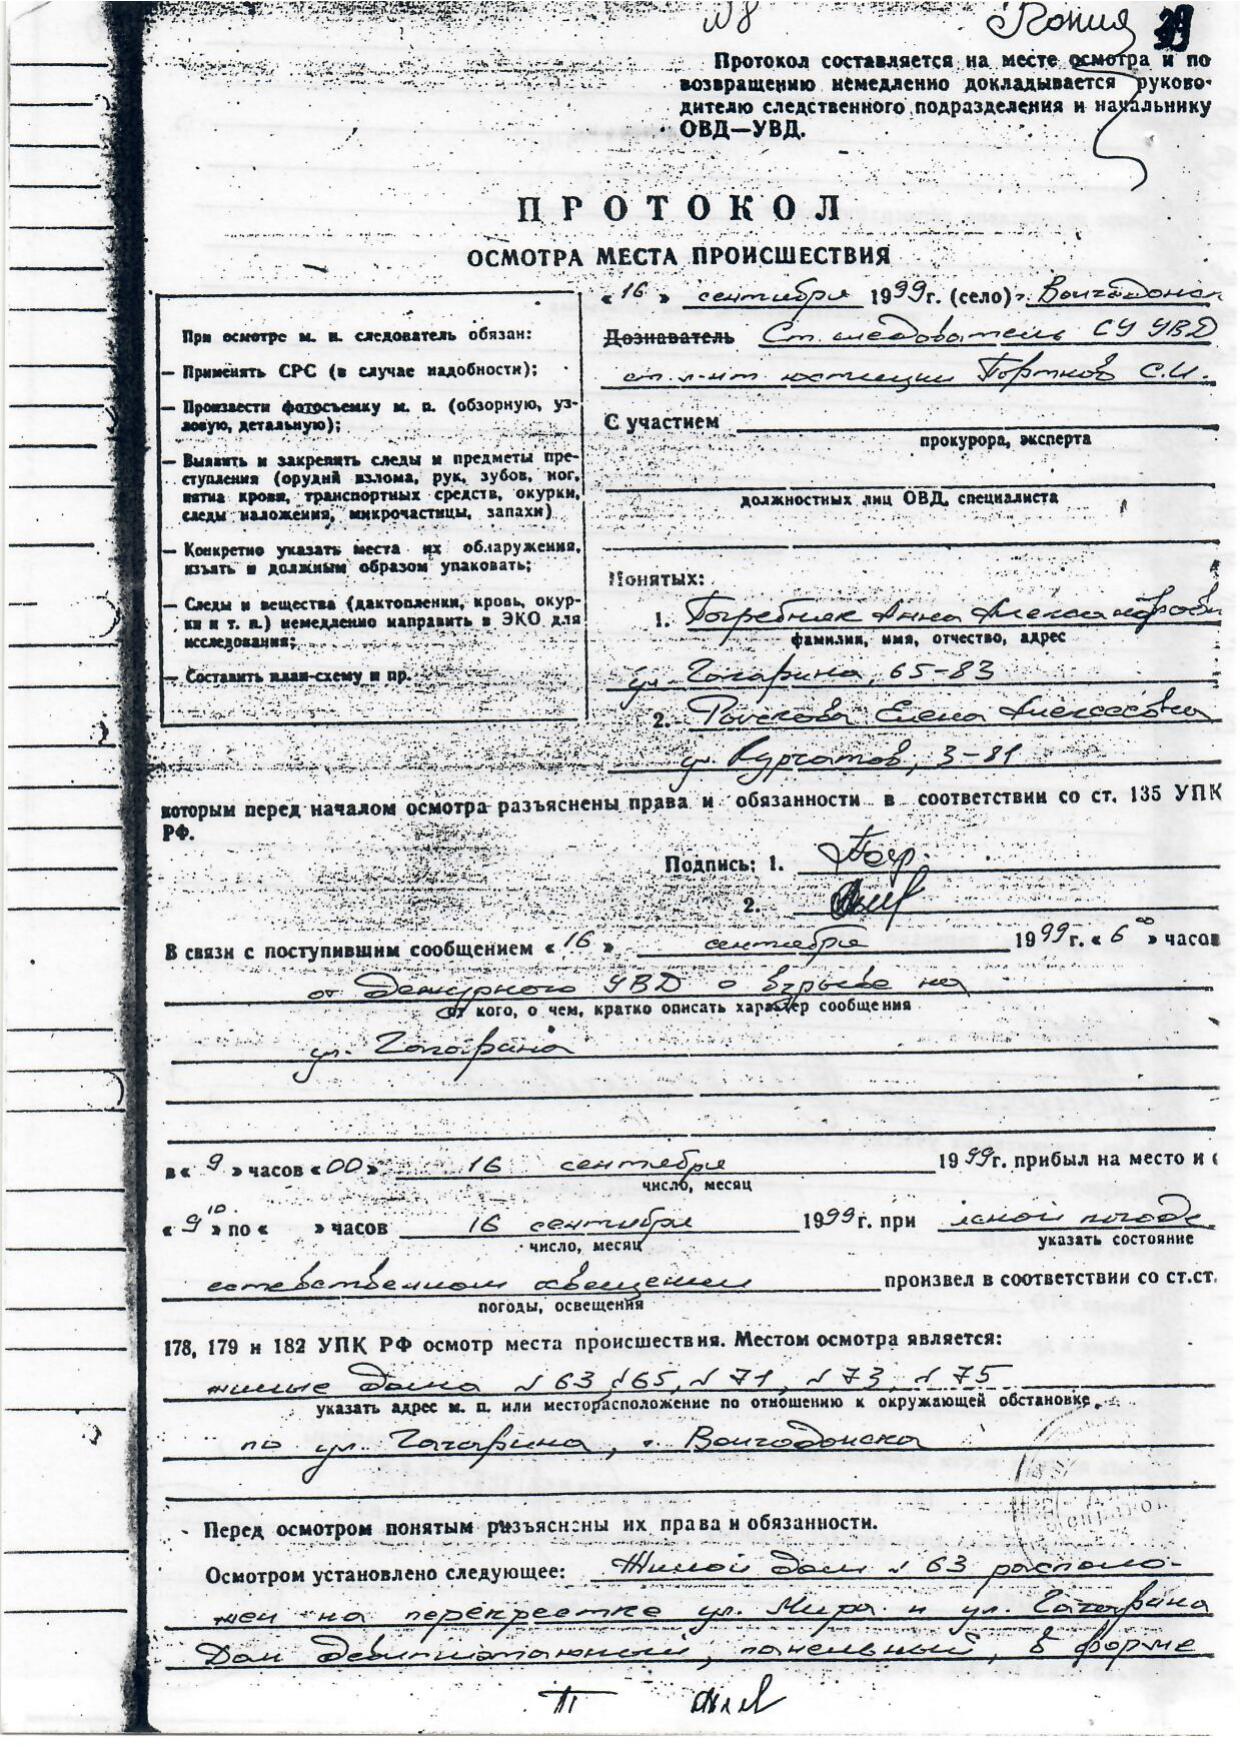 №8 Копия 39
Протокол составляется на месте осмотра и по
возвращению немедленно докладывается руково-
дителю следственного подразделения и начальнику
ОВД—УВД.
ПРОТОКОЛ
ОСМОТРА МЕСТА ПРОИСШЕСТВИЯ
При осмотре м. п. следователь обязан:
— Применять СРС (в случае надобности);
— Произвести фотосъемку м. п. (обзорную, уз-
ловую, детальную);
— Выявить и закрепить следы и предметы пре-
ступления (орудий взлома, рук, зубов, ног,
пятна крови, транспортных средств, окурки,
следы наложения, микрочастицы, запахи)
— Конкретно указать места их обнаружения,
изъять и должным образом упаковать;
— Следы и вещества (дактопленки, кровь, окур-
ки и т. п.) немедленно направить в ЭКО для
исследования;
— Составить план-схему и пр.
« 16 » сентября 1999г. (село) г. Волгодонск
Дознаватель Ст. следователь СУ УВД
ст. л-нт юстиции Гортнов С.И.
С участием
прокурора, эксперта
должностных лиц ОВД, специалиста
Понятых:
1. Погребняк Анна Александровн
фамилия, имя, отчество, адрес
ул. Гагарина, 65-83
2. Елена Алексеевна
ул. Курчатов, 3-81
которым перед началом осмотра разъяснены права и обязанности в соответствии со ст. 135 УПК
РФ.
Подпись: 1. Погр.
2.
В связи с поступившим сообщением « 16 » сентября 1999г. « 6 00 » часов
от дежурного УВД о взрыве на
от кого, о чем, кратко описать характер сообщения
ул. Гагарина
в « 9 » часов « 00 » 16 сентября 1999г. прибыл на место и с
число, месяц
« 9 10 » по « » часов 16 сентября 1999г. при ясной погоде
число, месяц указать состояние
естественном освещении произвел в соответствии со ст.ст.
погоды, освещения
178, 179 и 182 УПК РФ осмотр места происшествия. Местом осмотра является:
жилые дома №63, 65, №71, №73, №75
указать адрес м. п. или месторасположение по отношению к окружающей обстановке.
по ул. Гагарина, г. Волгодонска
Перед осмотром понятым разъяснены их права и обязанности.
Осмотром установлено следующее: Жилой дом №63 располо-
жен на перекрестке ул. Мира и ул. Гагарина
Дом девятиэтажный, панельный, в форме